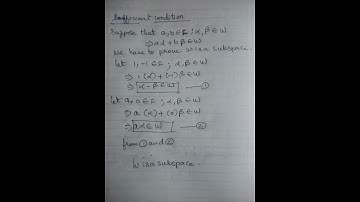 Sufficient condition
Suppose that a,b∈F ; α,β∈W
⇒ aα + bβ ∈ W
We have to prove W is a subspace.
let 1,-1∈F ; α,β∈W
⇒ 1(α)+(-1)β∈W
⇒ α-β∈W —①
let a,0∈F ; α,β∈W
⇒ a(α)+(0)β∈W
⇒ aα∈W —②
from ① and ②
W is a subspace.